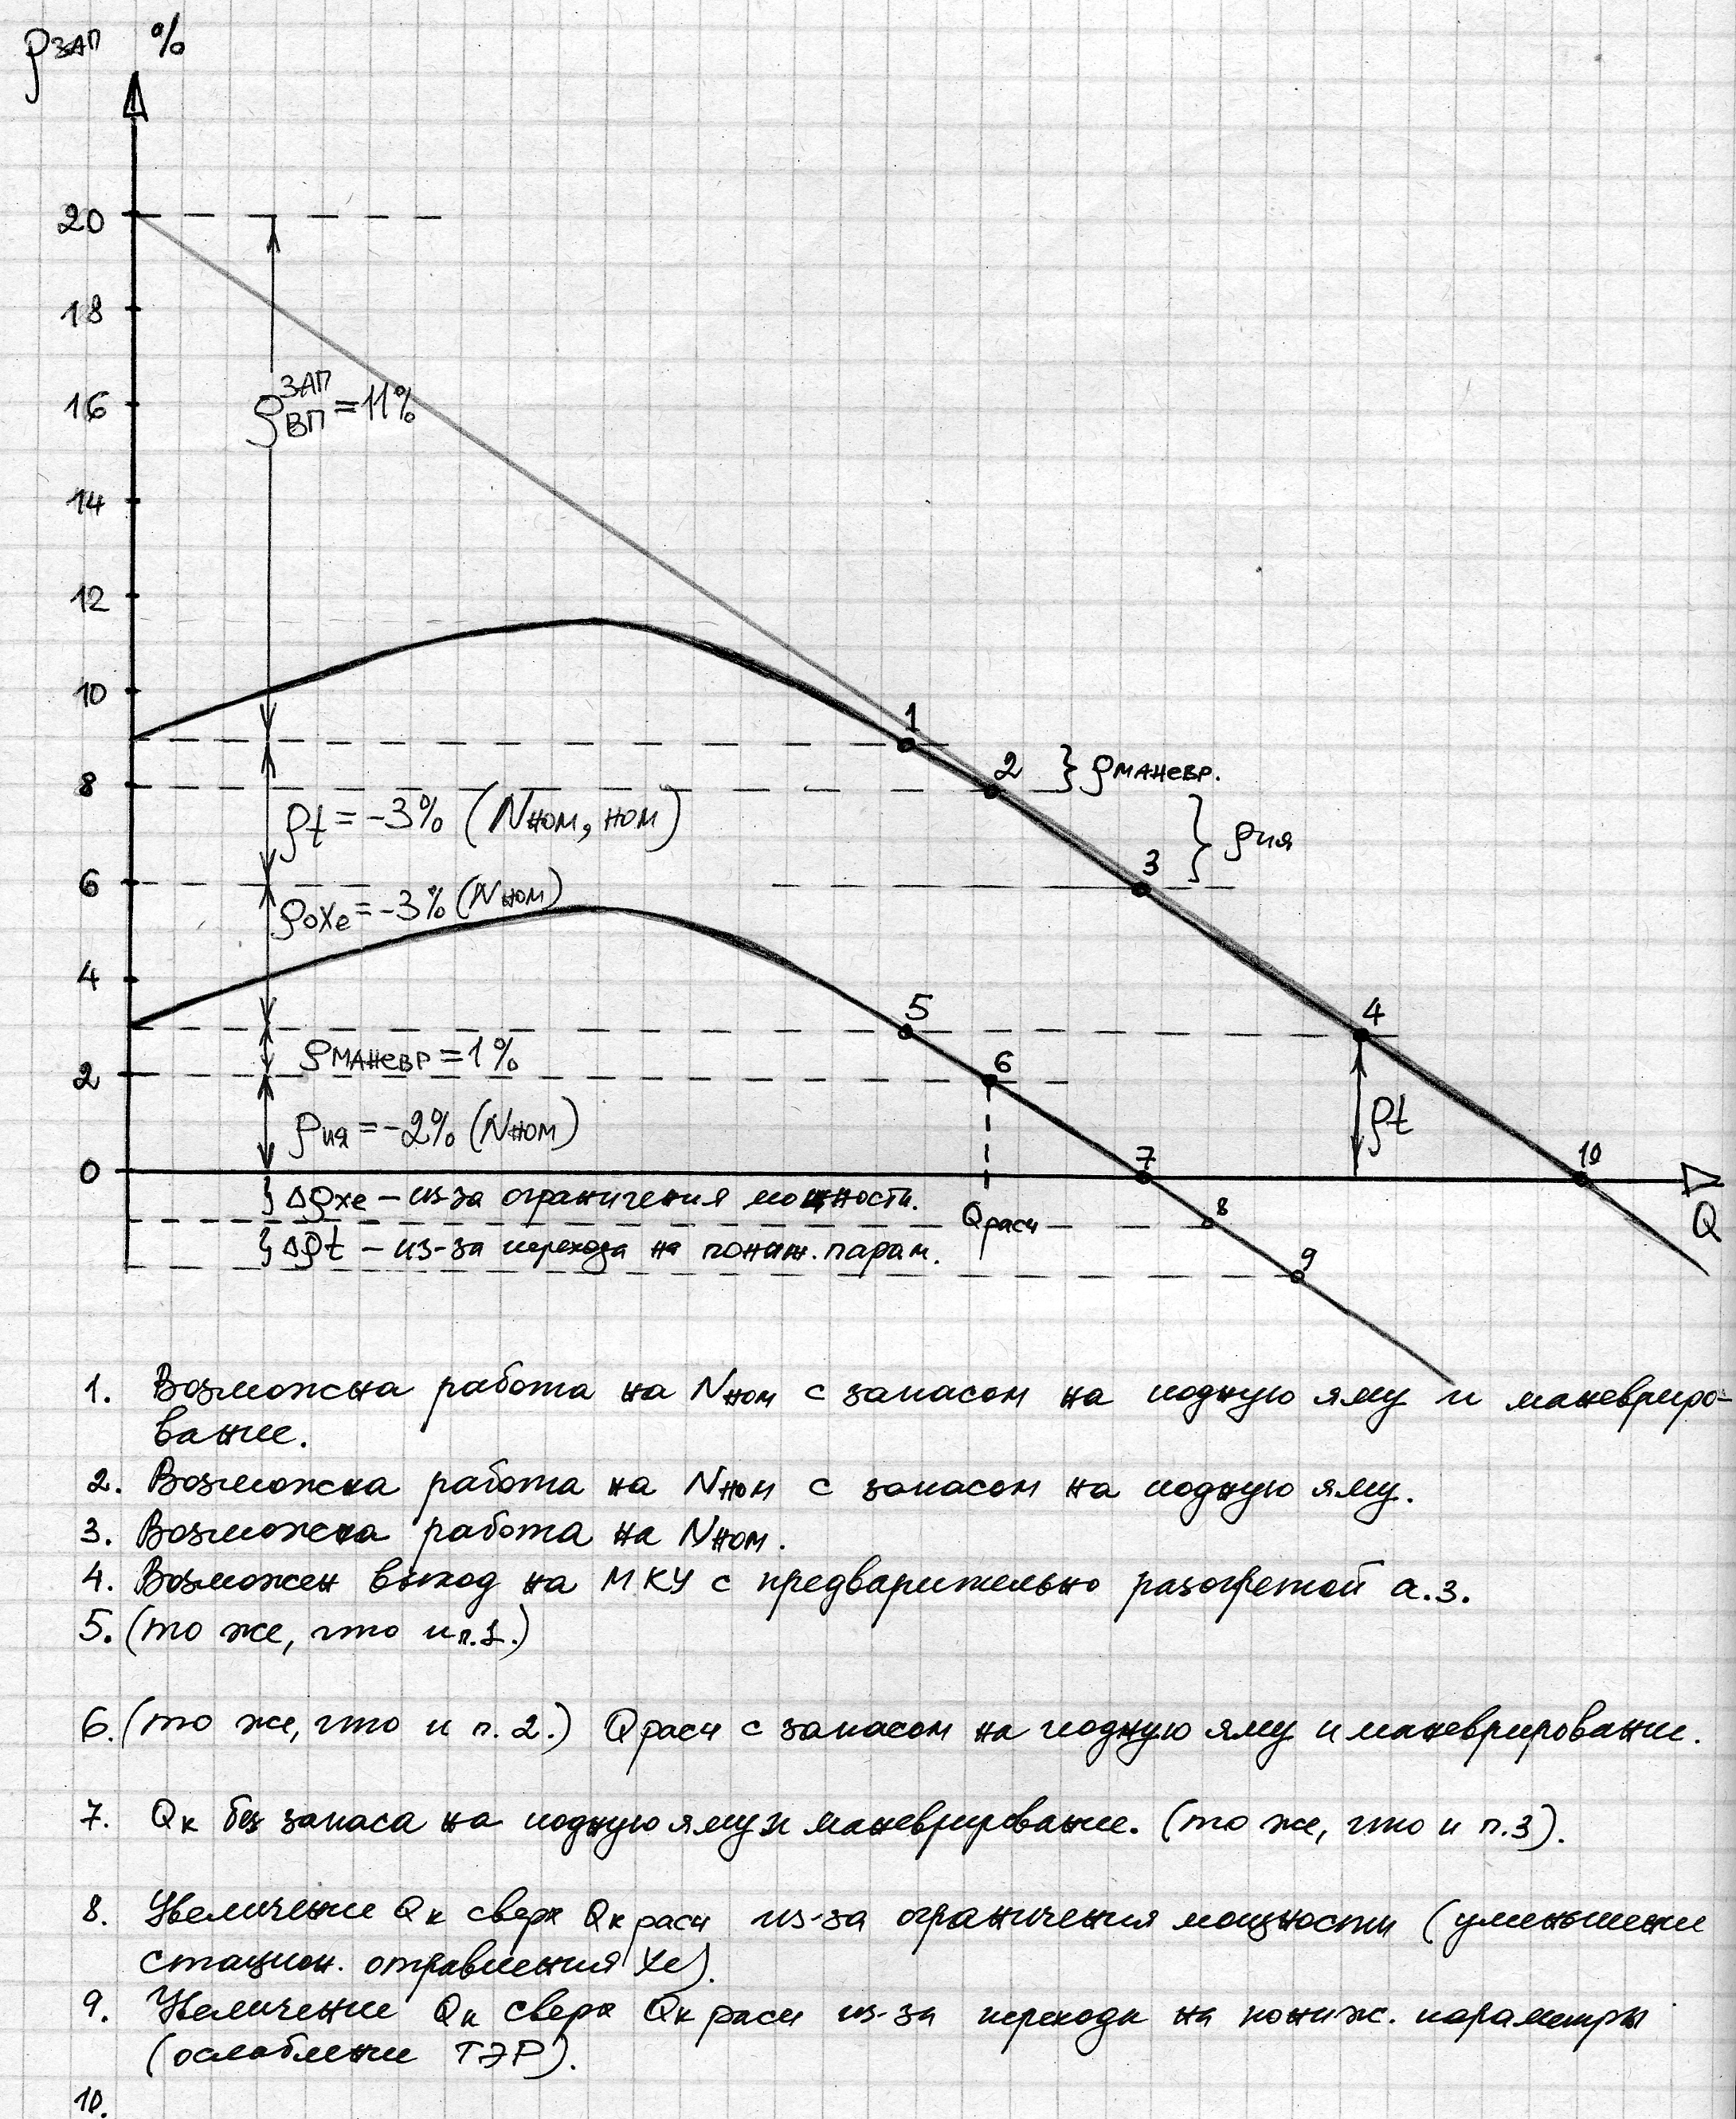 ρ ЗАП %
20
18
ρ ЗАП ВП = 11%
16
14
12
10
1
2 } ρ МАНЕВР.
8
ρt = -3% (Nном, ном)
} ρ ия
3
6
ρ оXe = -3% (Nном)
4
5
4
ρ МАНЕВР = 1%
6
2
ρ ия = -2% (Nном)
ρt
7
10
0
} Δρxe – из-за ограничения мощности.
Qрасч
8
Q
} Δρt – из-за перехода на пониж. парам.
9
1. Возможна работа на Nном с запасом на иодную яму и маневриро-
вание.
2. Возможна работа на Nном с запасом на иодную яму.
3. Возможна работа на Nном.
4. Возможен выход на МКУ с предварительно разогретой а.з.
5. (то же, что и п.1.)
6. (то же, что и п. 2.) Qрасч с запасом на иодную яму и маневрирование.
7. Qк без запаса на иодную яму и маневрирование. (то же, что и п.3).
8. Увеличение Qк сверх Qк расч из-за ограничения мощности (уменьшение
стацион. отравления Xe).
9. Увеличение Qк сверх Qк расч из-за перехода на пониж. параметры
(ослабление ТЭР).
10.